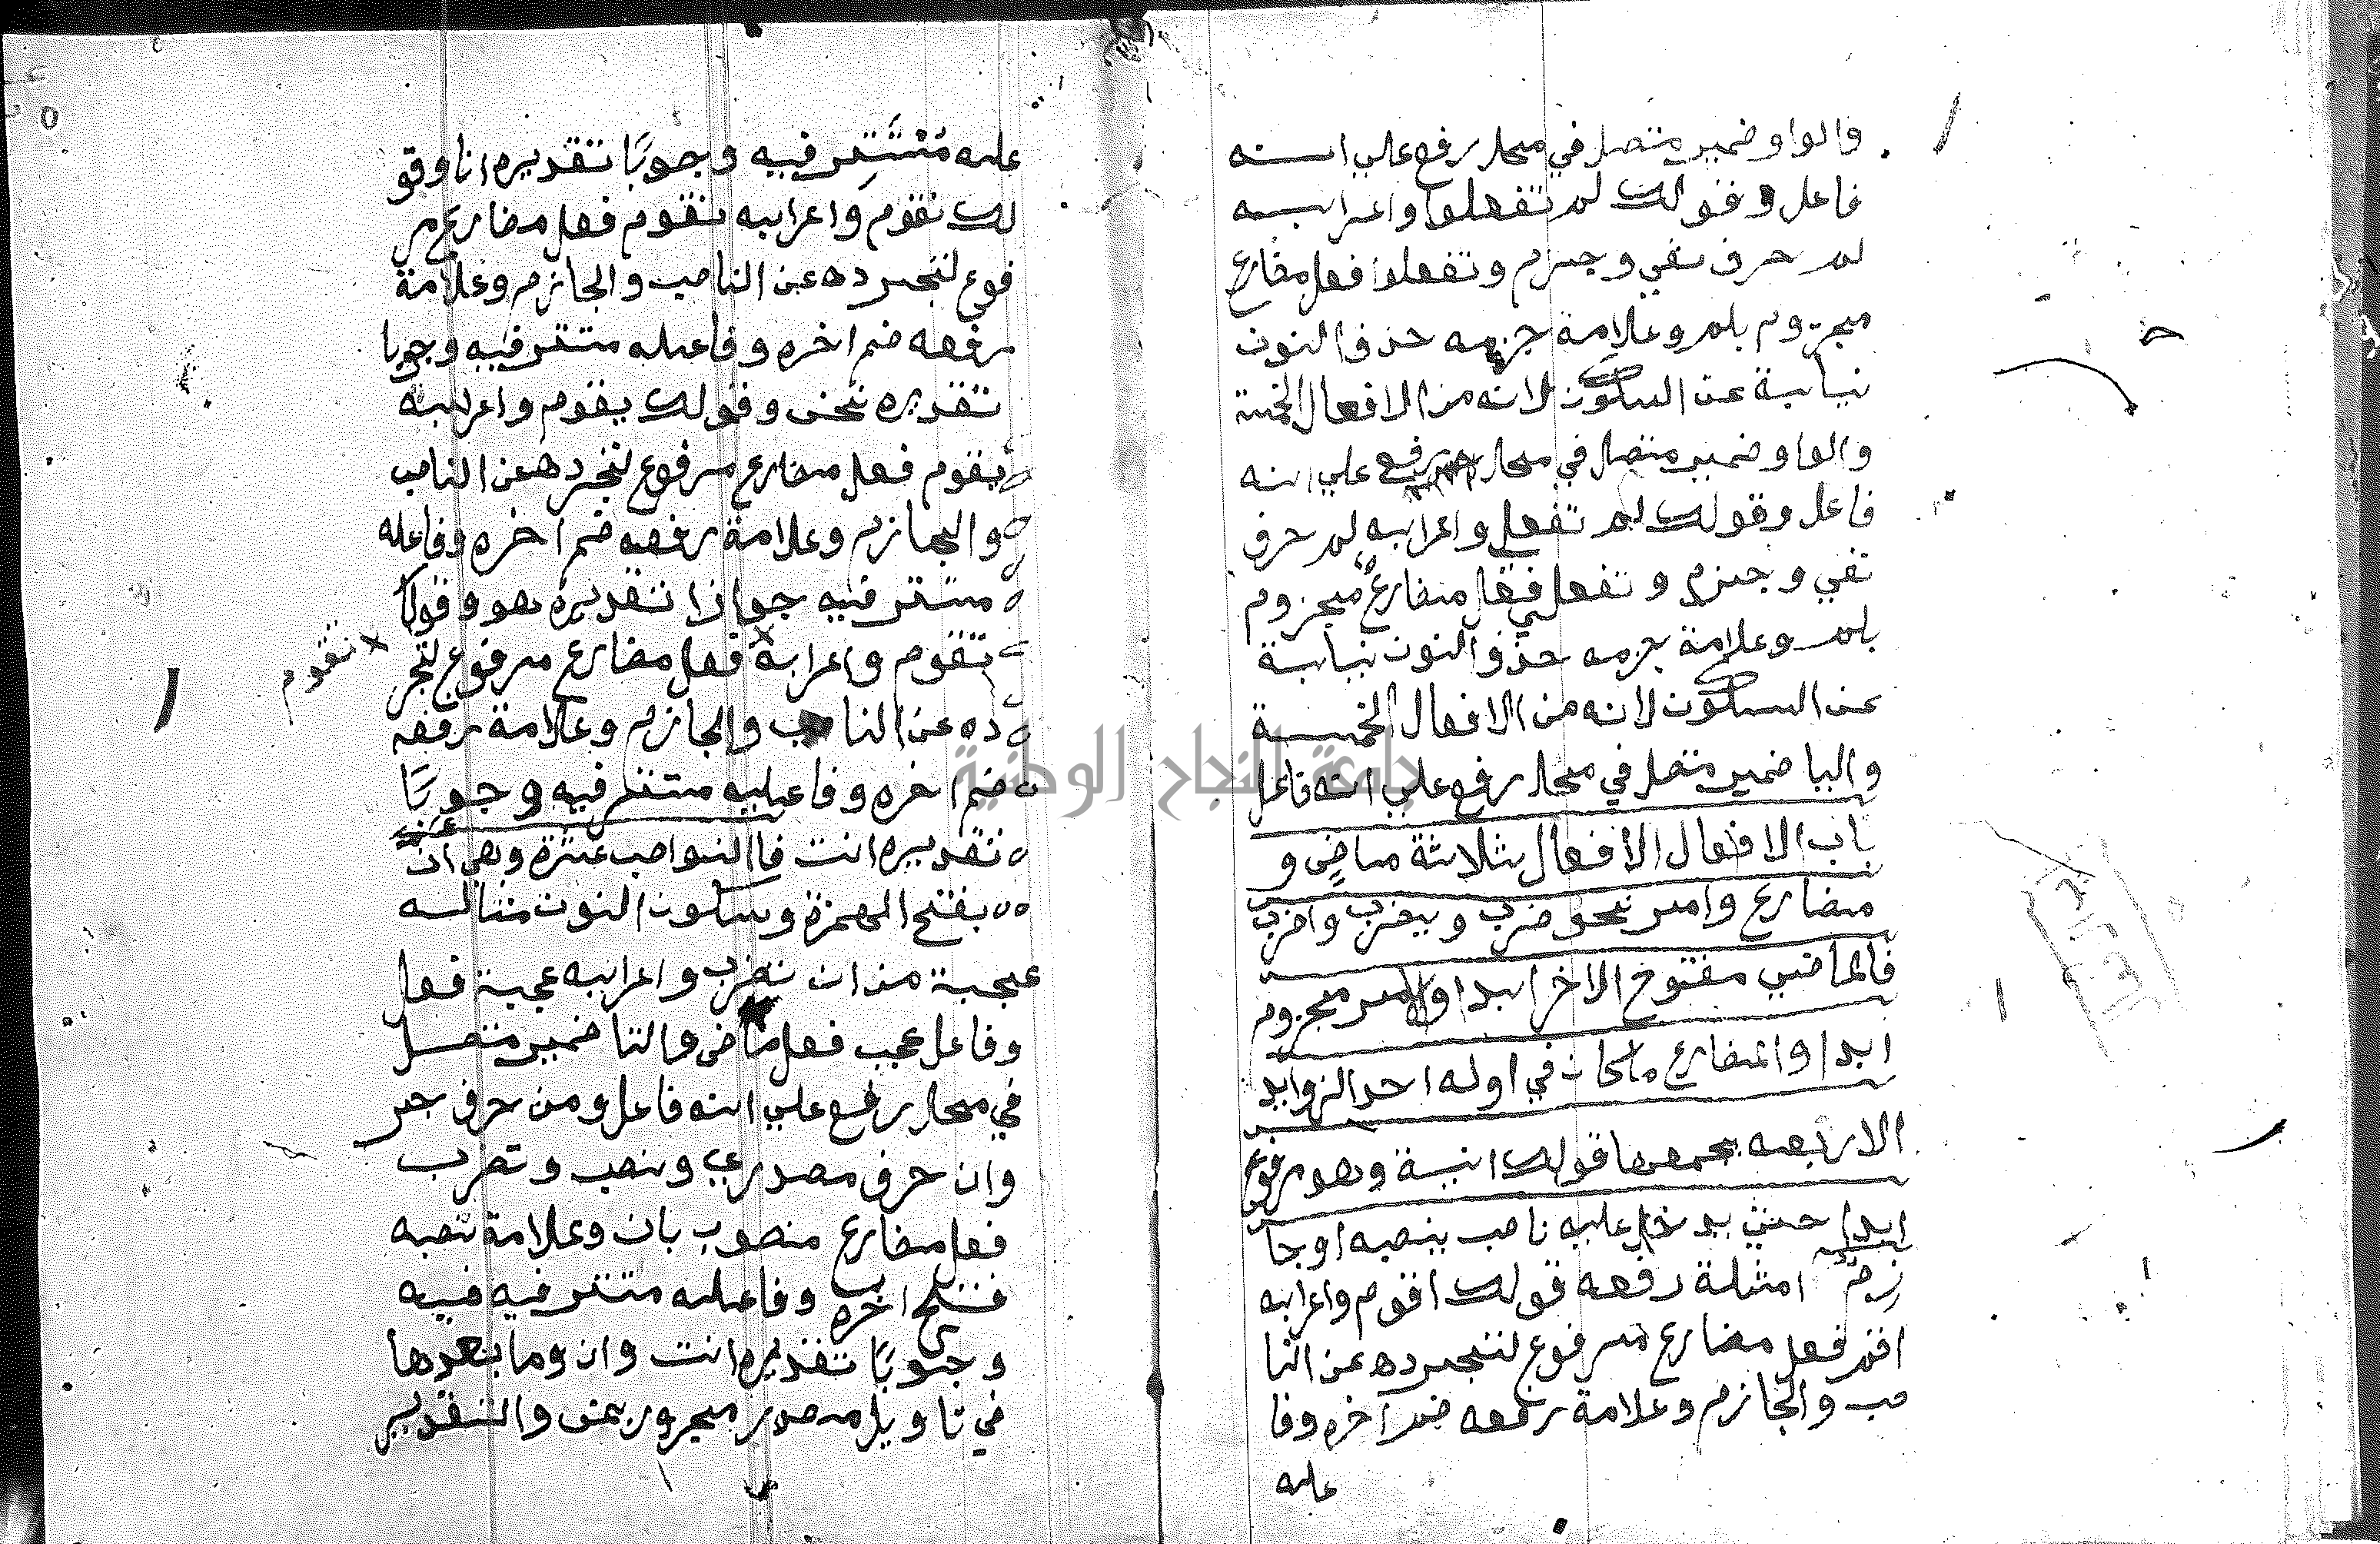 والواو ضمير متصل في محل رفع علي انه
فاعل وقولك لم تفعلوا واعرابه
لم حرف نفي وجزم وتفعلوا فعل مضارع
مجزوم بلم وعلامة جزمه حذف النون
نيابة عن السكون لانه من الافعال الخمسة
والواو ضمير متصل في محل رفع علي انه
فاعل وقولك لم تفعلي واعرابه لم حرف
نفي وجزم و تفعلي فعل مضارع مجزوم
بلم وعلامة جزمه حذف النون نيابة
عن السكون لانه من الافعال الخمسة
واليا ضمير متصل في محل رفع علي انه فاعل
باب الافعال الافعال ثلاثة ماضي و
مضارع وامر نحو ضرب ويضرب واضرب
فالماضي مفتوح الاخر ابدا والامر مجزوم
ابدا والمضارع ماكان في اوله احد الزوايد
الاربعه يجمعها قولك انيت وهو مرفوع
ابدا حتي يدخل عليه ناصب ينصبه او جا
زم امثلة رفعه قولك اقوم واعرابه
اقوم فعل مضارع مرفوع لتجرده عن النا
صب والجازم وعلامة رفعه ضم آخره وفا
عله
عله مُسْتَتِر فيه وجوبًا تقديره انا وقو
لك نقوم واعرابه نقوم فعل مضارع مر
فوع لتجرده عن الناصب والجازم وعلامة
رفعه ضم اخره وفاعله مستتر فيه وجوبا
تقديره نحن وقولك يقوم واعرابه
يقوم فعل مضارع مرفوع لتجرده عن الناصب
والجازم وعلامة رفعه ضم اخره وفاعله
مستتر فيه جوازا تقديره هو وقولك
تقوم واعرابه فعل مضارع مرفوع لتجر
تقوم
ده عن الناصب والجازم وعلامة رفعه
ضم اخره وفاعله مستتر فيه وجوبًا
تقديره انت فالنواصب عشرة وهي أنْ
بفتح الهمزة وسكون النون مثاله
عجبت من ان تضرب واعرابه عجبت فعل
وفاعل عجب فعل ماضي والتا ضمير متصل
في محل رفع علي انه فاعل ومن حرف جر
وان حرف مصدري ونصب وتضرب
فعل مضارع منصوب بان وعلامة نصبه
فتح اخره وفاعله مستتر فيه فيه
وجوبًا تقديره انت وان وما بعدها
في تاويل مصدر مجرور بمن والتقدير
جامعة النجاح الوطنية